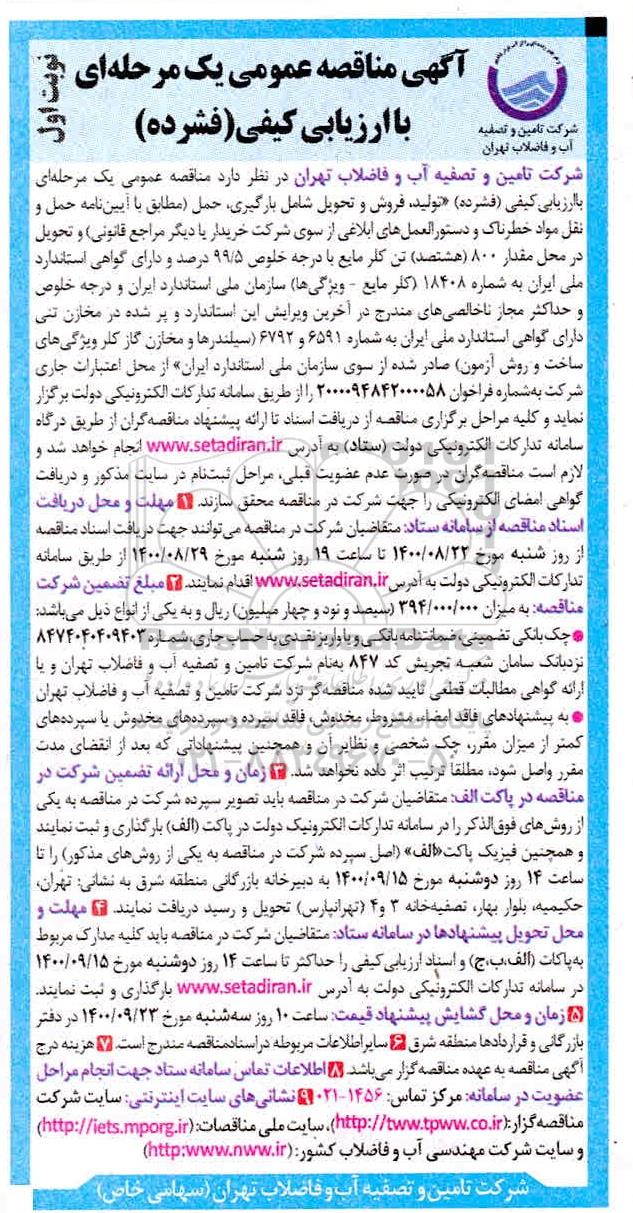 آگهی مناقصه عمومی یک مرحله‌ای
با ارزیابی کیفی (فشرده)
نوبت اول
شرکت تامین و تصفیه
آب و فاضلاب تهران
شرکت تامین و تصفیه آب و فاضلاب تهران در نظر دارد مناقصه عمومی یک مرحله‌ای
باارزیابی‌کیفی (فشرده) «تولید، فروش و تحویل شامل بارگیری، حمل (مطابق با آیین‌نامه حمل و
نقل مواد خطرناک و دستورالعمل‌های ابلاغی از سوی شرکت خریدار یا دیگر مراجع قانونی) و تحویل
در محل مقدار ۸۰۰ (هشتصد) تن کلر مایع با درجه خلوص ۹۹/۵ درصد و دارای گواهی استاندارد
ملی ایران به شماره ۱۸۴۰۸ (کلر مایع - ویژگی‌ها) سازمان ملی استاندارد ایران و درجه خلوص
و حداکثر مجاز ناخالصی‌های مندرج در آخرین ویرایش این استاندارد و پر شده در مخازن تنی
دارای گواهی استاندارد ملی ایران به شماره ۶۵۹۱ و ۶۷۹۲ (سیلندرها و مخازن گاز کلر ویژگی‌های
ساخت و روش آزمون) صادر شده از سوی سازمان ملی استاندارد ایران» از محل اعتبارات جاری
شرکت به‌شماره فراخوان ۲۰۰۰۰۹۴۸۴۲۰۰۰۰۵۸ را از طریق سامانه تدارکات الکترونیکی دولت برگزار
نماید و کلیه مراحل برگزاری مناقصه از دریافت اسناد تا ارائه پیشنهاد مناقصه‌گران از طریق درگاه
سامانه تدارکات الکترونیکی دولت (ستاد) به آدرس www.setadiran.ir انجام خواهد شد و
لازم است مناقصه‌گران در صورت عدم عضویت قبلی، مراحل ثبت‌نام در سایت مذکور و دریافت
گواهی امضای الکترونیکی را جهت شرکت در مناقصه محقق سازند. ۱ مهلت و محل دریافت
اسناد مناقصه از سامانه ستاد: متقاضیان شرکت در مناقصه می‌توانند جهت دریافت اسناد مناقصه
از روز شنبه مورخ ۱۴۰۰/۰۸/۲۲ تا ساعت ۱۹ روز شنبه مورخ ۱۴۰۰/۰۸/۲۹ از طریق سامانه
تدارکات الکترونیکی دولت به آدرس www.setadiran.ir اقدام نمایند. ۲ مبلغ تضمین شرکت
مناقصه: به میزان ۳۹۴/۰۰۰/۰۰۰ (سیصد و نود و چهار میلیون) ریال و به یکی از انواع ذیل می‌باشد:
● چک بانکی تضمینی، ضمانتنامه بانکی و یا واریز نقدی به حساب جاری، شماره ۸۴۷۴۰۴۰۴۰۹۴۰۳
نزد بانک سامان شعبه تجریش کد ۸۴۷ به‌نام شرکت تامین و تصفیه آب و فاضلاب تهران و یا
ارائه گواهی مطالبات قطعی تایید شده مناقصه‌گر نزد شرکت تامین و تصفیه آب و فاضلاب تهران
● به پیشنهادهای فاقد امضاء، مشروط، مخدوش، فاقد سپرده و سپرده‌های مخدوش یا سپرده‌های
کمتر از میزان مقرر، چک شخصی و نظایر آن و همچنین پیشنهاداتی که بعد از انقضای مدت
مقرر واصل شود، مطلقاً ترتیب اثر داده نخواهد شد. ۳ زمان و محل ارائه تضمین شرکت در
مناقصه در پاکت الف: متقاضیان شرکت در مناقصه باید تصویر سپرده شرکت در مناقصه به یکی
از روش‌های فوق‌الذکر را در سامانه تدارکات الکترونیک دولت در پاکت (الف) بارگذاری و ثبت نمایند
و همچنین فیزیک پاکت «الف» (اصل سپرده شرکت در مناقصه به یکی از روش‌های مذکور) را تا
ساعت ۱۴ روز دوشنبه مورخ ۱۴۰۰/۰۹/۱۵ به دبیرخانه بازرگانی منطقه شرق به نشانی: تهران،
حکیمیه، بلوار بهار، تصفیه‌خانه ۳ و۴ (تهرانپارس) تحویل و رسید دریافت نمایند. ۴ مهلت و
محل تحویل پیشنهادها در سامانه ستاد: متقاضیان شرکت در مناقصه باید کلیه مدارک مربوط
به‌پاکات (الف،ب،ج) و اسناد ارزیابی‌کیفی را حداکثر تا ساعت ۱۴ روز دوشنبه مورخ ۱۴۰۰/۰۹/۱۵
در سامانه تدارکات الکترونیکی دولت به آدرس www.setadiran.ir بارگذاری و ثبت نمایند.
۵ زمان و محل گشایش پیشنهاد قیمت: ساعت ۱۰ روز سه‌شنبه مورخ ۱۴۰۰/۰۹/۲۳ در دفتر
بازرگانی و قراردادها منطقه شرق ۶ سایر اطلاعات مربوطه در اسناد مناقصه مندرج است. ۷ هزینه درج
آگهی مناقصه به عهده مناقصه‌گزار می‌باشد. ۸ اطلاعات تماس سامانه ستاد جهت انجام مراحل
عضویت در سامانه: مرکز تماس: ۱۴۵۶-۰۲۱ ۹ نشانی‌های سایت اینترنتی: سایت شرکت
مناقصه‌گزار: (http://tww.tpww.co.ir)، سایت ملی مناقصات: (http://iets.mporg.ir)
و سایت شرکت مهندسی آب و فاضلاب کشور: (http:www.nww.ir)
شرکت تامین و تصفیه آب و فاضلاب تهران (سهامی خاص)